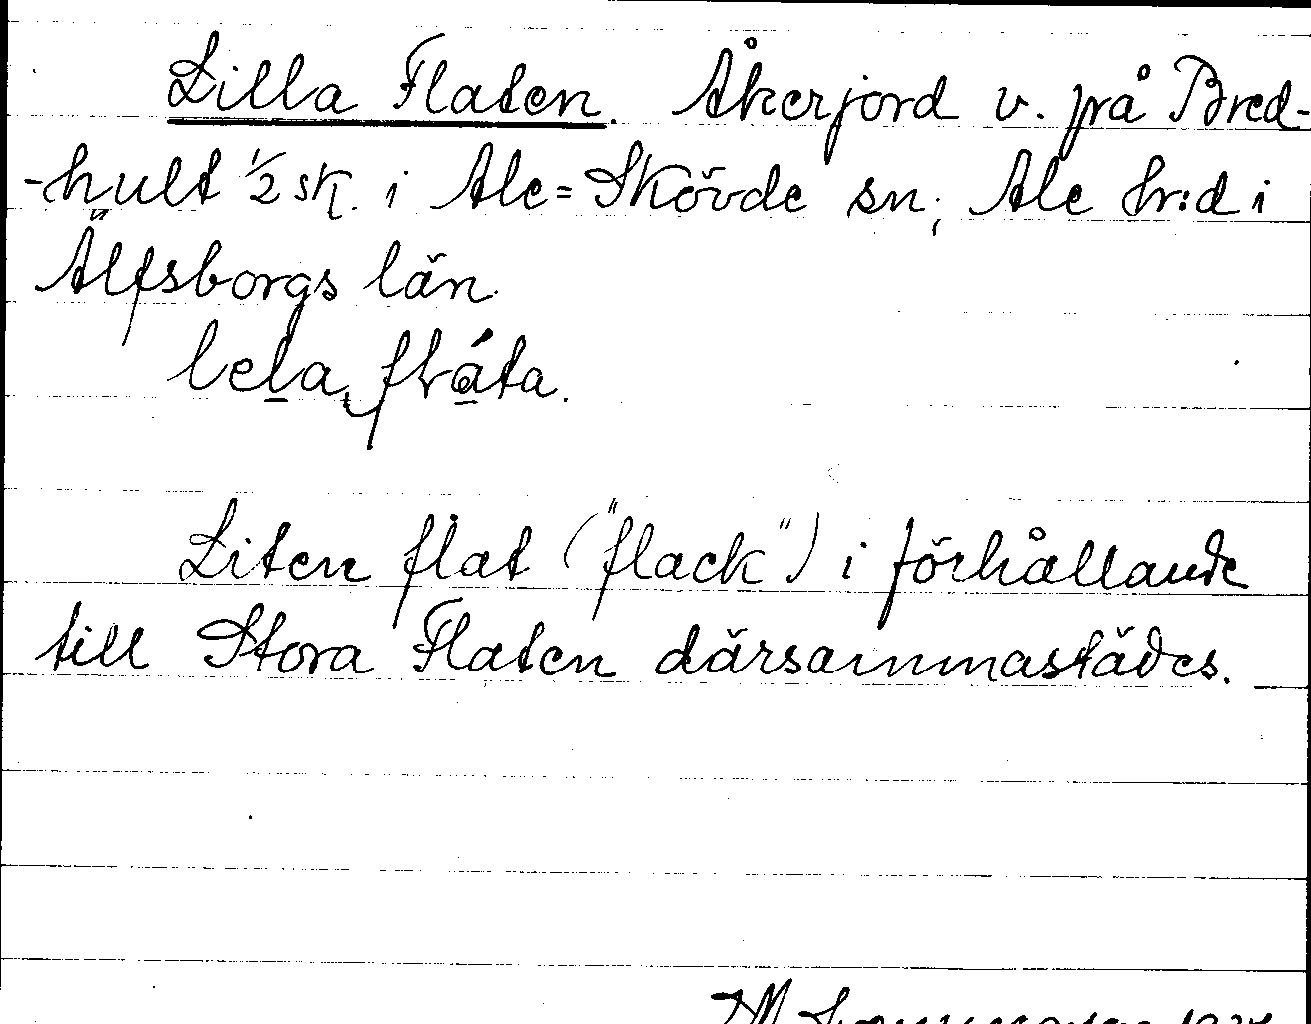 Lilla Flaten. Åkerjord v. på Bred-
-hult 1/2 sk. i Ale=Skövde sn, Ale hr:d i
Älfsborgs län.
lela flata.
Liten flat ("flack") i förhållande
till Stora Flaten därsammastädes.